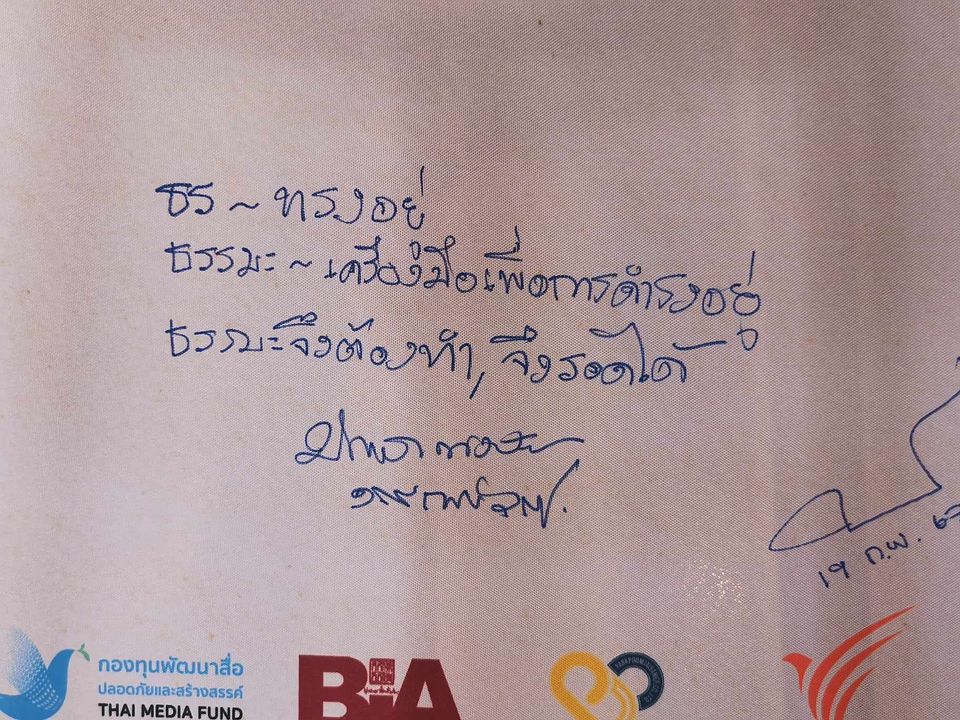 ธร ~ ทรงอยู่
ธรรมะ ~ เครื่องมือเพื่อการดำรงอยู่
ธรรมะจึงต้องทำ, จึงรอดได้
๑๙ ก.พ.
กองทุนพัฒนาสื่อ
ปลอดภัยและสร้างสรรค์
THAI MEDIA FUND
BIA